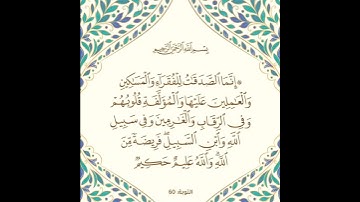 بِسْمِ اللَّهِ الرَّحْمَٰنِ الرَّحِيمِ
۞ إِنَّمَا الصَّدَقَٰتُ لِلْفُقَرَآءِ وَالْمَسَٰكِينِ
وَالْعَٰمِلِينَ عَلَيْهَا وَالْمُؤَلَّفَةِ قُلُوبُهُمْ
وَفِي الرِّقَابِ وَالْغَٰرِمِينَ وَفِي سَبِيلِ
اللَّهِ وَابْنِ السَّبِيلِ ۖ فَرِيضَةً مِّنَ
اللَّهِ ۗ وَاللَّهُ عَلِيمٌ حَكِيمٌ
التوبة: 60